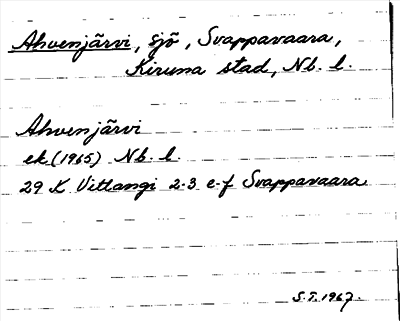 Ahvenjärvi, sjö, Svappavaara,
Kiruna stad, Nb. l.
Ahvenjärvi
ek (1965) Nb. l.
29 K Vittangi 2-3 e-f Svappavaara
S.T. 1967.